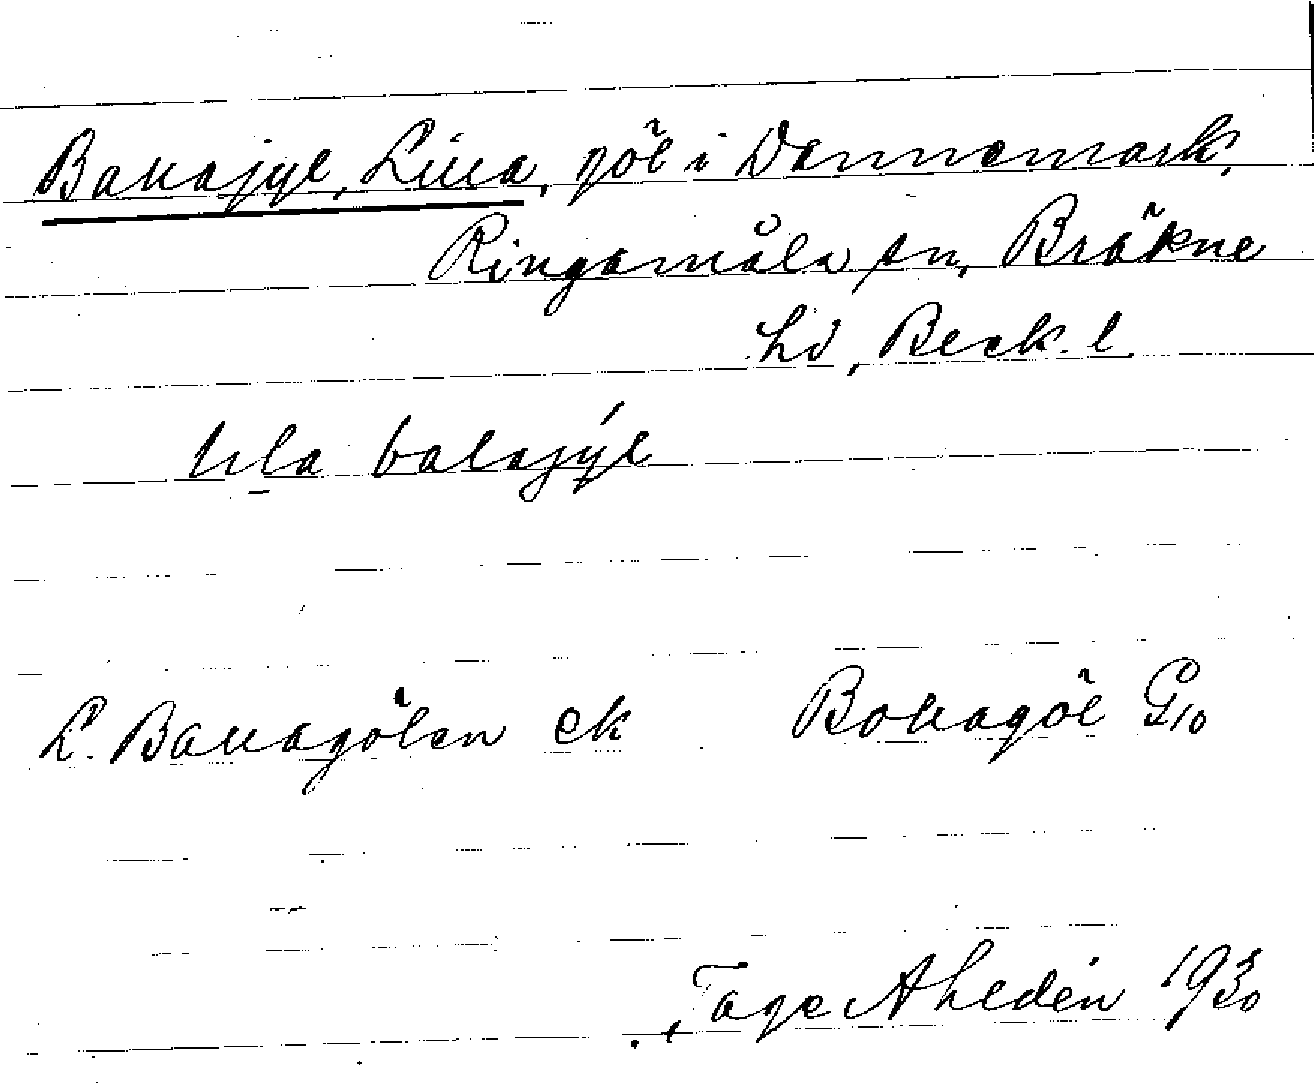 Ballajyl, Lilla, göl i Dannemark,
Ringamåla sn, Bräkne
hd, Bleck. l.
lıla balajýl
L. Ballagölen ek Bollagöl G10
Tage Ahldén 1930